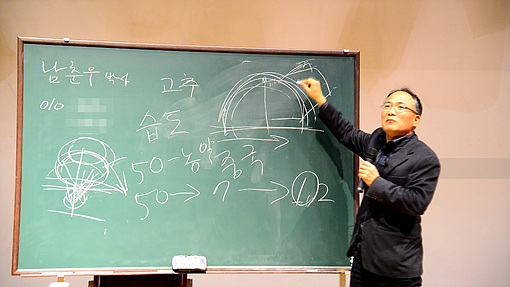 남춘우 박사
010
고추
습도
50-농약 중독
50→7→1,2